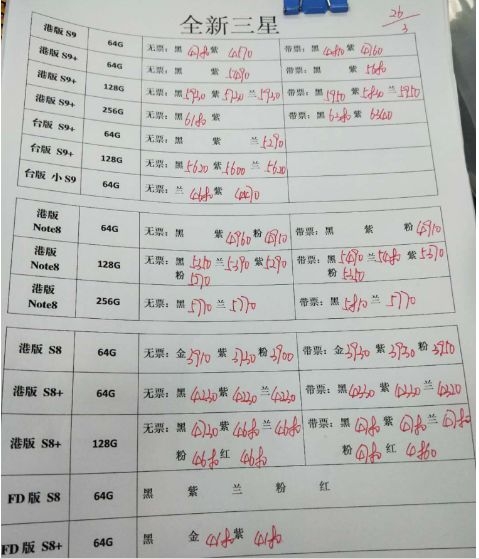 全新三星
26/3
港版 S9 64G 无票：黑 4780 紫 4570 带票：黑 4850 紫 4760
港版 S9+ 64G 无票：黑 紫 带票：黑 紫 5680
港版 S9+ 128G 无票：黑 5930 紫 5930 兰 5930 带票：黑 5950 紫 兰 5950
港版 S9+ 256G 无票：黑 6180 紫 带票：黑 6280 紫
台版 S9+ 64G 无票：黑 紫 兰 5290
台版 S9+ 128G 无票：黑 5620 紫 5600 兰 5620
台版 小 S9 64G 无票：兰 4680 紫
港版 Note8 64G 无票：黑 紫 4960 粉 4910 带票：黑 紫 粉 4910
港版 Note8 128G 无票：黑 兰 5390 紫 5290 带票：黑 兰 紫
粉 粉
港版 Note8 256G 无票：黑 5770 兰 5770 带票：黑 5810 兰 5770
港版 S8 64G 无票：金 3910 紫 3930 粉 3900 带票：金 3930 紫 3930 粉
港版 S8+ 64G 无票：黑 4230 紫 4220 兰 4230 带票：黑 4330 紫 兰 4320
港版 S8+ 128G 无票：黑 4720 紫 4680 兰 4680 带票：黑 4780 紫 4780 兰 4780
粉 4680 红 4680 粉 4780 红 4860
FD 版 S8 64G 黑 紫 兰 粉 红
FD 版 S8+ 64G 黑 金 4180 紫 4180